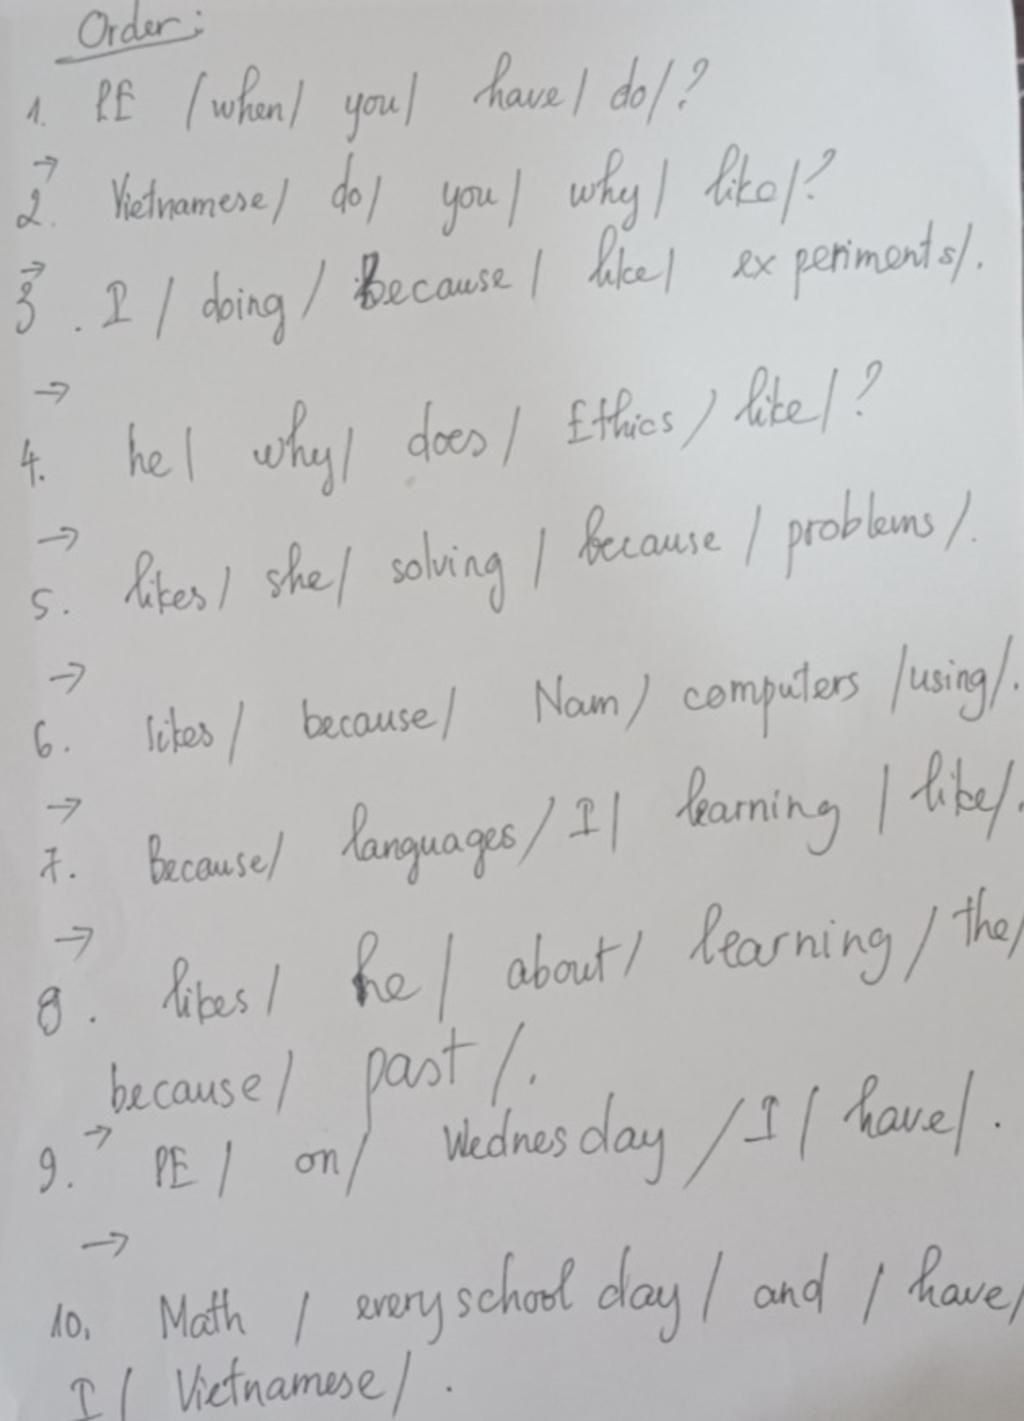 Order:
1. PE / when / you / have / do / ?
→
2. Vietnamese / do / you / why / like / ?
→
3. I / doing / Because / like / experiments / .
→
4. he / why / does / Ethics / like / ?
→
5. likes / she / solving / because / problems / .
→
6. likes / because / Nam / computers / using / .
→
7. Because / languages / I / learning / like / .
→
8. likes / he / about / learning / the /
because / past / .
→
9. PE / on / Wednesday / I / have / .
→
10. Math / every school day / and / have /
I / Vietnamese / .